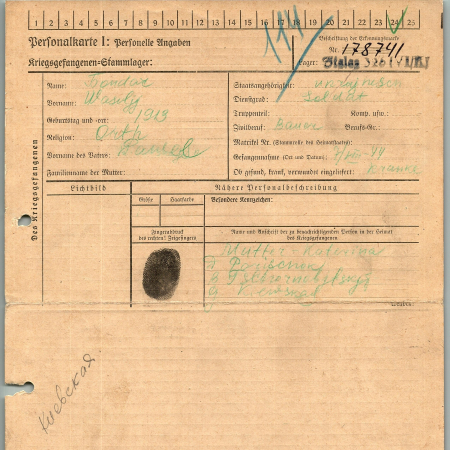 1 2 3 4 5 6 7 8 9 10 11 12 13 14 15 16 17 18 19 20 21 22 23 24 25
Personalkarte I: Personelle Angaben
Kriegsgefangenen-Stammlager:
Beschriftung der Erkennungsmarke
Nr. 178741
Lager: Stalag 326 (VI/K)
Des Kriegsgefangenen
Name: Bondar
Vorname: Wasily
Geburtstag und -ort: 1913
Religion: Orth
Vorname des Vaters:
Familienname der Mutter:
Staatsangehörigkeit:
Dienstgrad: Soldat
Truppenteil: Komp. usw.:
Zivilberuf: Bauer Berufs-Gr.:
Matrikel Nr. (Stammrolle des Heimatstaates):
Gefangennahme (Ort und Datum):
Ob gesund, krank, verwundet eingeliefert:
Lichtbild
Nähere Personalbeschreibung
Größe Haarfarbe
Besondere Kennzeichen:
Fingerabdruck
des rechten! Zeigefingers
Name und Anschrift der zu benachrichtigenden Person in der Heimat
des Kriegsgefangenen
Mutter Katerina
Киевская